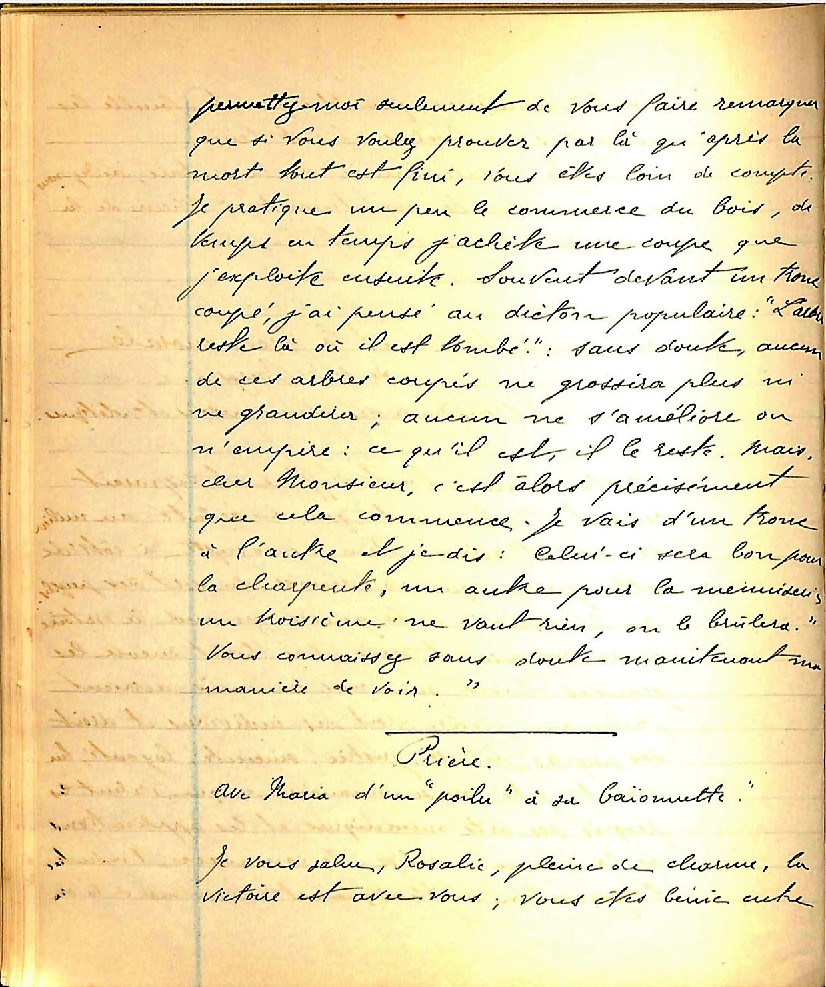 permettez-moi seulement de vous faire remarquer
que si vous voulez prouver par là qu'après la
mort tout est fini, vous êtes loin de compte.
Je pratique un peu le commerce du bois, de
temps en temps j'achète une coupe que
j'exploite ensuite. Souvent devant un tronc
coupé, j'ai pensé au dicton populaire : "L'arbre
reste là où il est tombé." : sans doute, aucun
de ces arbres coupés ne grossira plus ni
ne grandira ; aucun ne s'améliore ou
n'empire : ce qu'il est, il le reste. Mais,
cher Monsieur, c'est alors précisément
que cela commence. Je vais d'un tronc
à l'autre et je dis : Celui-ci sera bon pour
la charpente, un autre pour la menuiserie
un troisième ne vaut rien, on le brûlera."
Vous connaissez sans doute maintenant ma
manière de voir. "
Prière.
Ave Maria d'un "poilu" à sa baïonnette."
Je vous salue, Rosalie, pleine de charme, la
victoire est avec vous ; vous êtes bénie entre